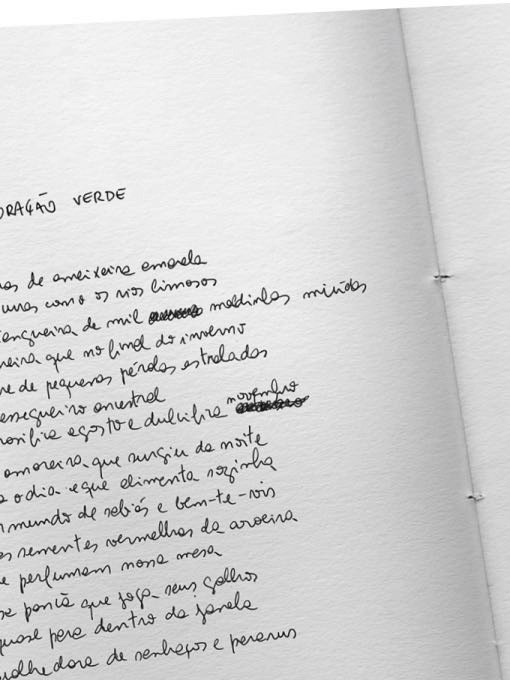 ORAÇÃO VERDE
as de ameixeira amarela
uras como os rios limosos
angueira de mil maldinhas miúdas
eira que no final do inverno
re de pequenas pérolas estreladas
essegueiro ancestral
rosifica agosto e dulcifica novembro
amoreira que surgiu da noite
a o dia e que alimenta sozinha
m mundo de sabiás e bem-te-vis
as sementes vermelhas da aroeira
e perfumam nossa mesa
se pariá que joga seus galhos
quase para dentro da janela
olhedora de sanhaços e